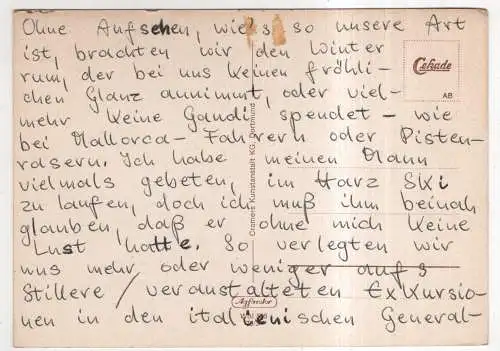 Ohne Aufsehen, wie's so unsere Art
ist, brachten wir den Winter
rum, der bei uns keinen fröhli-
chen Glanz annimmt, oder viel-
mehr keine Gaudi spendet – wie
bei Mallorca-Fahrern oder Pisten-
rasern. Ich habe meinen Mann
vielmals gebeten, im Harz Ski
zu laufen, doch ich muß ihm beinah
glauben, daß er ohne mich keine
Lust hatte. So verlegten wir
uns mehr oder weniger aufs
Stillere / veranstalteten Exkursio-
nen in den italienischen General-
Cekade
AB
Cramers Kunstanstalt KG, Dortmund